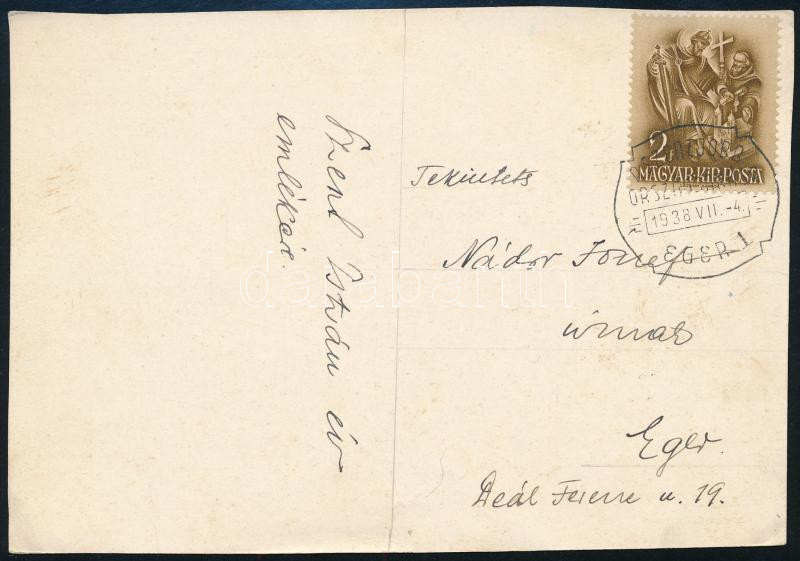 Szent István év
emlékére.
2
MAGYAR·KIR·POSTA
1938 VII.-4.
EGER 1
Tekintetes
Nádor József
úrnak
Eger.
Deák Ferenc u. 19.
darabanth